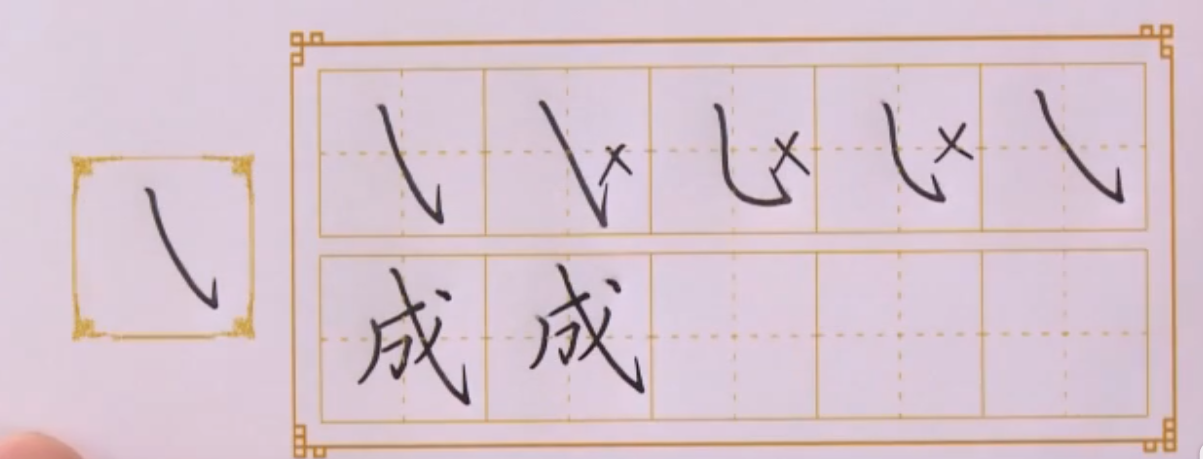 ㇂ ㇂× ㇂× ㇂× ㇂
㇂
成 成